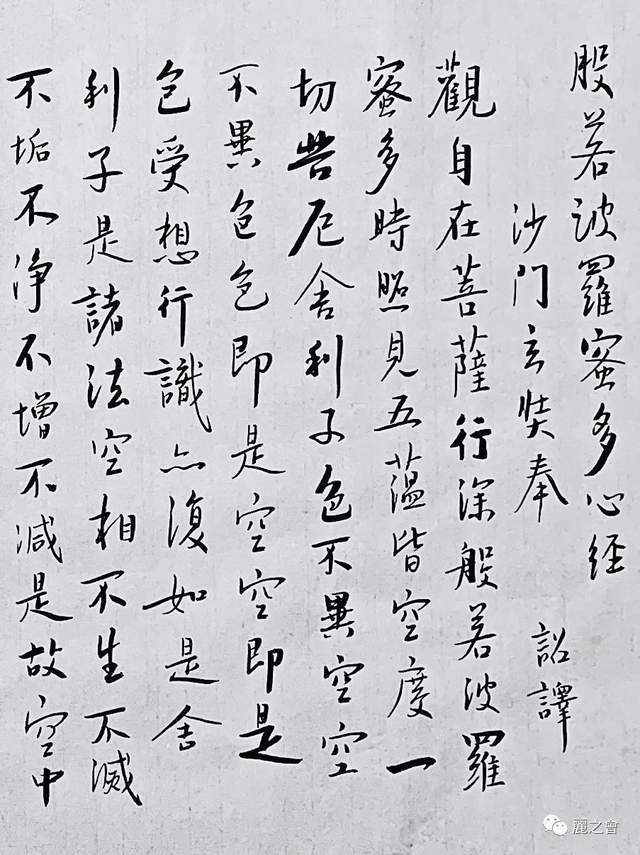 般若波羅蜜多心經
沙門玄奘奉 詔譯
觀自在菩薩行深般若波羅
蜜多時照見五蘊皆空度一
切苦厄舍利子色不異空空
不異色色即是空空即是
色受想行識亦復如是舍
利子是諸法空相不生不滅
不垢不淨不增不減是故空中
麗之會